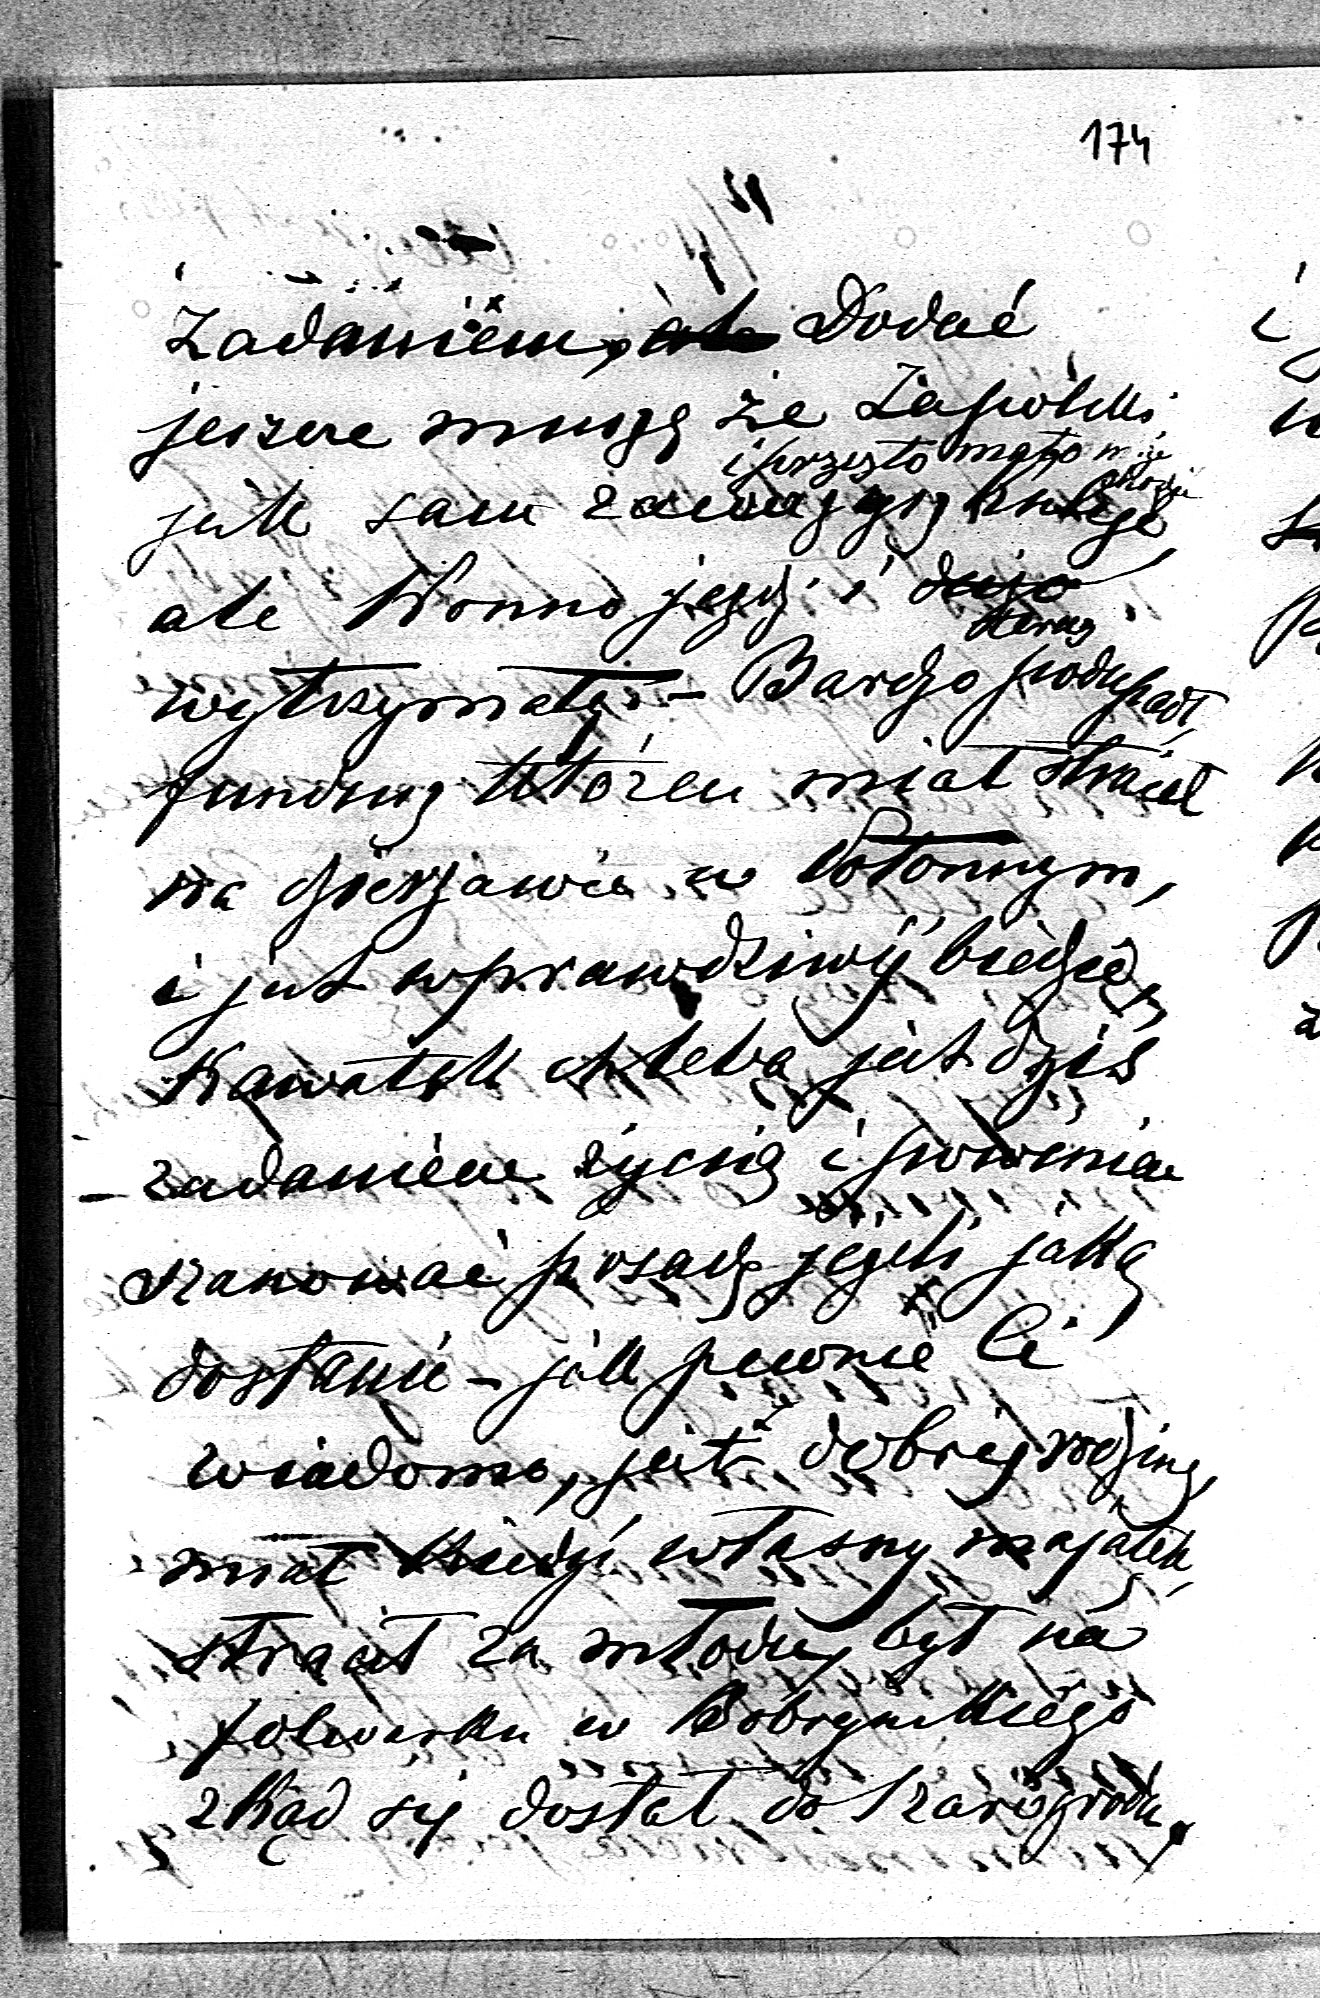 174
Zadaniem, Dodać
jeszcze muszę że Zapolski
i przez to mało może
jak sam zawsze kuleje
ale Konno jeździ i
teraz
wytrzymały – Bardzo podupadł
fundusz który miał stracił
na dzierżawie w Połonnym,
i jest w prawdziwy biedzie,
Kawałek chleba jest dziś
zadaniem życia i powinien
szanować posadę jeżeli jaką
dostanie – jak pewnie Ci
wiadomo, jest z dobrej rodziny,
miał kiedyś własny majątek,
stracił za młodu, był na
folwarku w Bobryńskiego
zkąd się dostał do Szarogrodu,